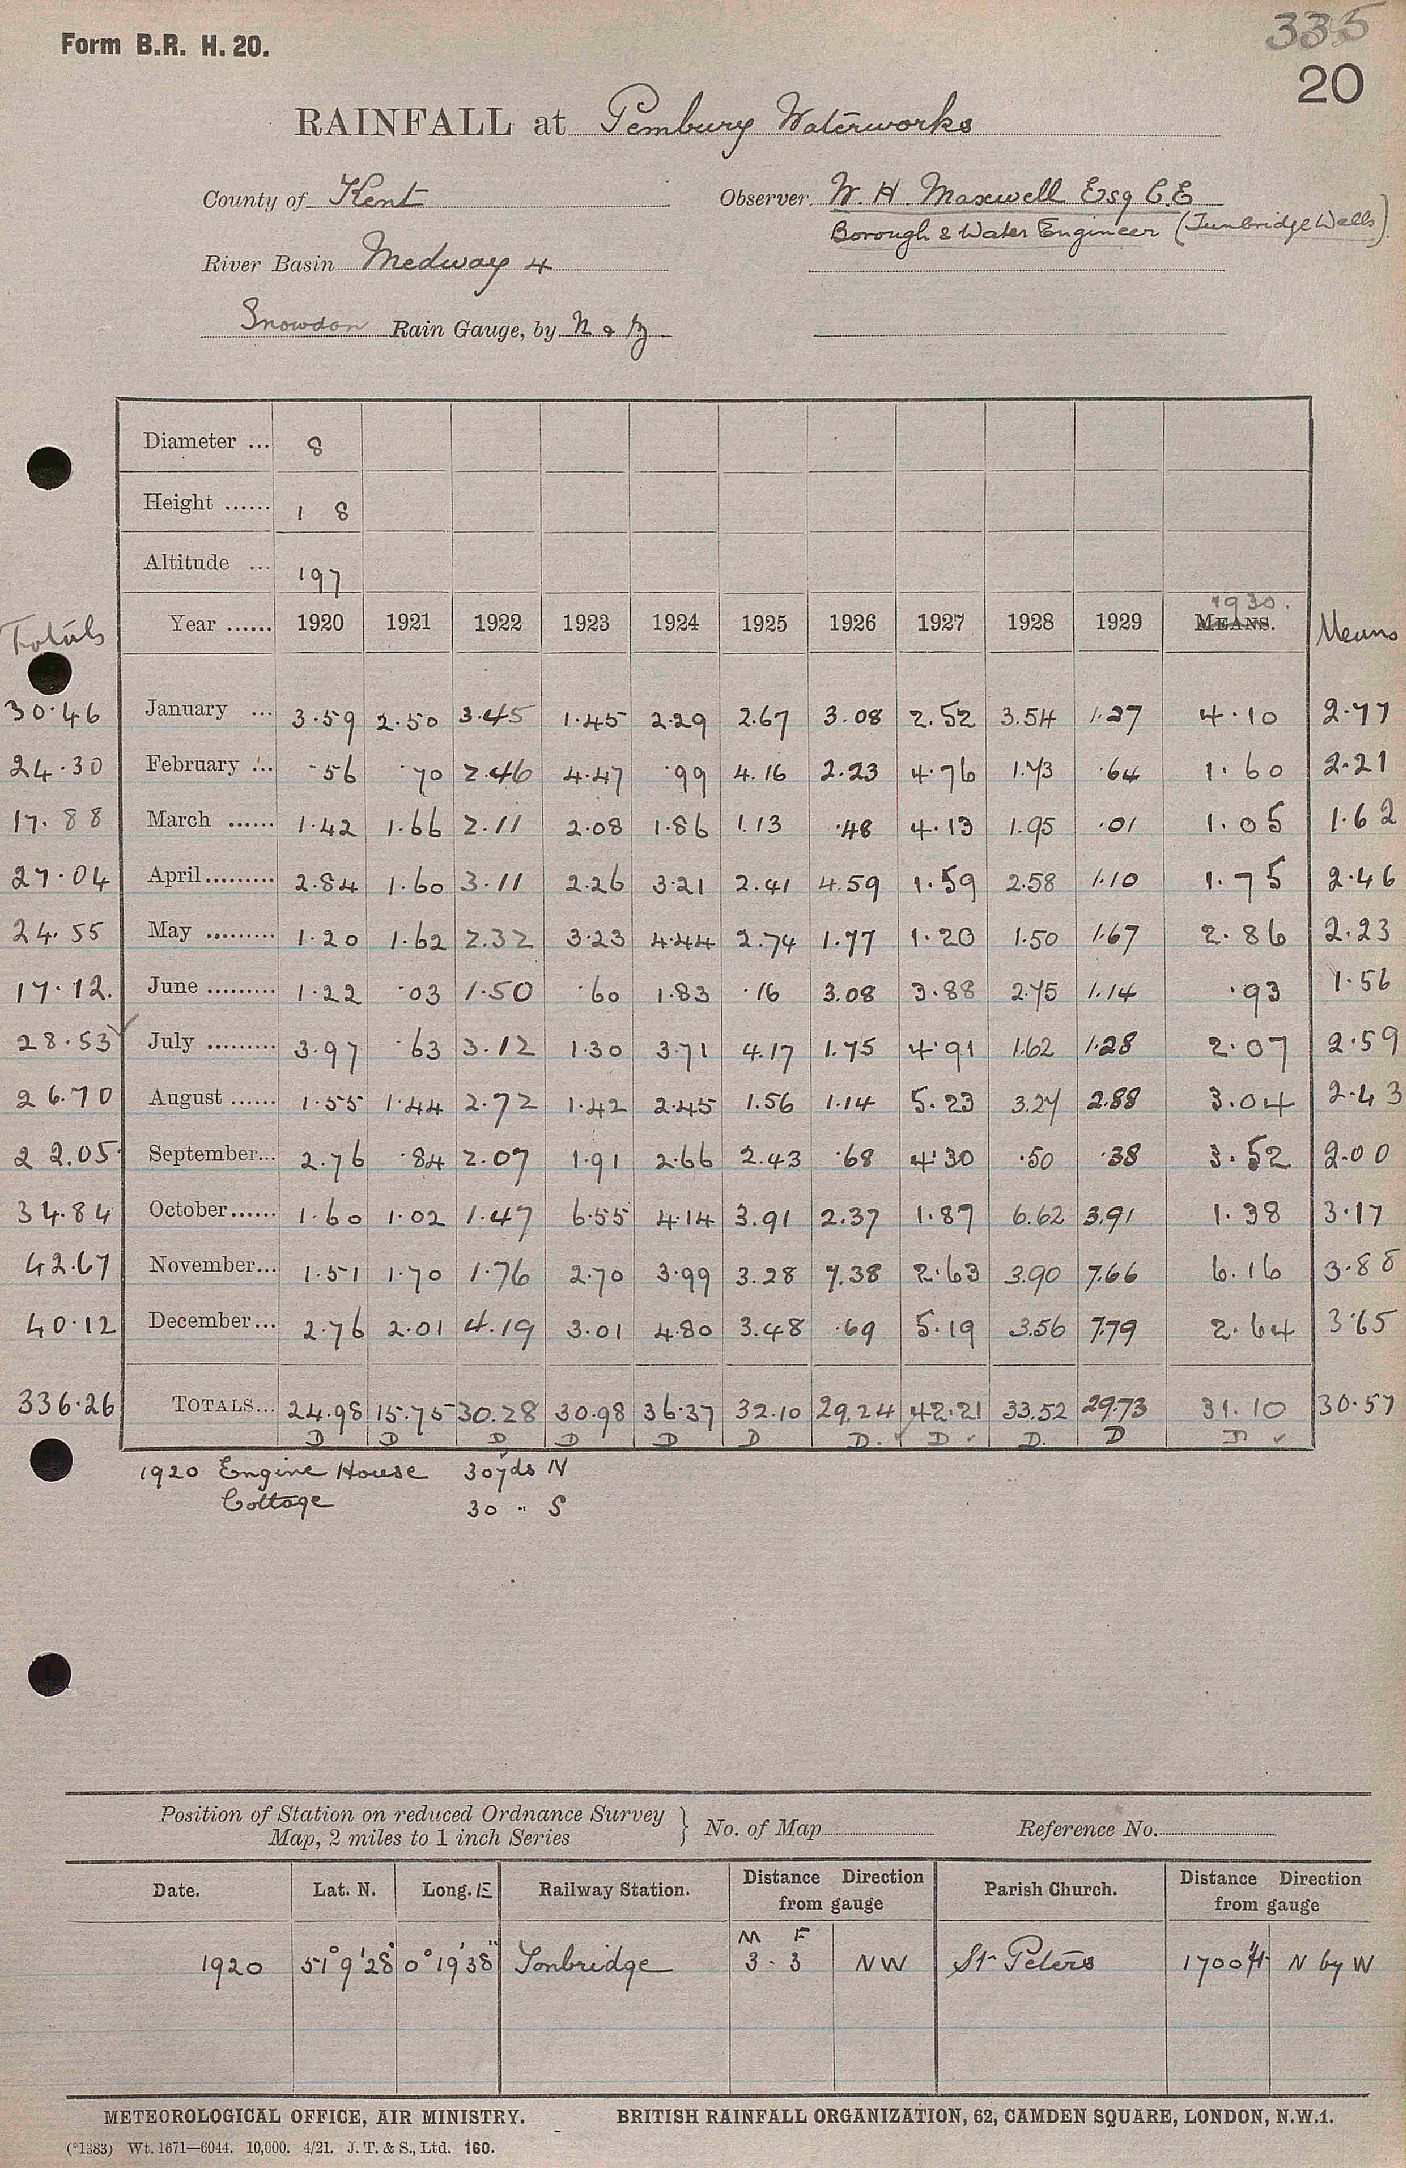 335
Form B.R. H. 20.
20
RAINFALL at Pembury Waterworks
County of Kent Observer W. H. Maxwell Esq C.E
Borough & Water Engineer (Tunbridge Wells)
River Basin Medway 4
Snowdon Rain Gauge, by N & Z
Diameter ... 8
Height ...... 1 8
Altitude ... 197
1930.
Totals Year ...... 1920 1921 1922 1923 1924 1925 1926 1927 1928 1929 MEANS. Means
30.46 January ... 3.59 2.50 3.45 1.45 2.29 2.67 3.08 2.52 3.54 1.27 4.10 2.77
24.30 February ... .56 .70 2.46 4.47 .99 4.16 2.23 4.76 1.73 .64 1.60 2.21
17.88 March ...... 1.42 1.66 2.11 2.08 1.86 1.13 .48 4.13 1.95 .01 1.05 1.62
27.04 April ......... 2.84 1.60 3.11 2.26 3.21 2.41 4.59 1.59 2.58 1.10 1.75 2.46
24.55 May ......... 1.20 1.62 2.32 3.23 4.44 2.74 1.77 1.20 1.50 1.67 2.86 2.23
17.12. June ......... 1.22 .03 1.50 .60 1.83 .16 3.08 3.88 2.75 1.14 .93 1.56
28.53 July ......... 3.97 .63 3.12 1.30 3.71 4.17 1.75 4.91 1.62 1.28 2.07 2.59
26.70 August ...... 1.55 1.44 2.72 1.42 2.45 1.56 1.14 5.23 3.27 2.88 3.04 2.43
22.05 September... 2.76 .84 2.07 1.91 2.66 2.43 .68 4.30 .50 .38 3.52 2.00
34.84 October ...... 1.60 1.02 1.47 6.55 4.14 3.91 2.37 1.87 6.62 3.91 1.38 3.17
42.67 November... 1.51 1.70 1.76 2.70 3.99 3.28 7.38 2.63 3.90 7.66 6.16 3.88
40.12 December... 2.76 2.01 4.19 3.01 4.80 3.48 .69 5.19 3.56 7.79 2.64 3.65
336.26 TOTALS... 24.98 15.75 30.28 30.98 36.37 32.10 29.24 42.21 33.52 29.73 31.10 30.57
D D D D D D D. ✓ D ✓ D. D D ✓
1920 Engine House 30 yds N
Cottage 30 " S
Position of Station on reduced Ordnance Survey
Map, 2 miles to 1 inch Series } No. of Map Reference No.
Date. Lat. N. Long. E Railway Station. Distance Direction from gauge Parish Church. Distance Direction from gauge
M F
1920 51° 9' 28" 0° 19' 38" Tonbridge 3 - 3 NW St Peters 1700 ft N by W
METEOROLOGICAL OFFICE, AIR MINISTRY. BRITISH RAINFALL ORGANIZATION, 62, CAMDEN SQUARE, LONDON, N.W.1.
(*1383) Wt. 1671—6044. 10,000. 4/21. J. T. & S., Ltd. 160.